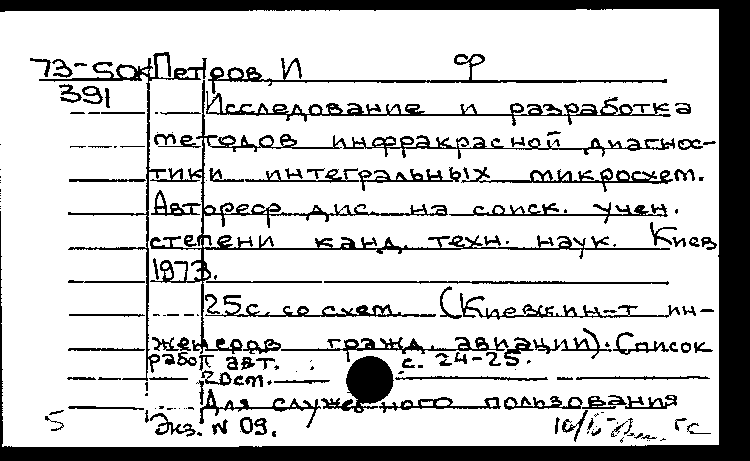 73-5ОК Петров, И ф
391
Исследование и разработка
методов инфракрасной диагнос-
тики интегральных микросхем.
Автореф дис. на соиск. учен.
степени канд. техн. наук. Киев
1973.
25с. со схем. (Киевск. ин-т ин-
женеров гражд. авиации). Список
работ авт. с. 24-25.
20ст.
Для служебного пользования
5 Экз. N 09.